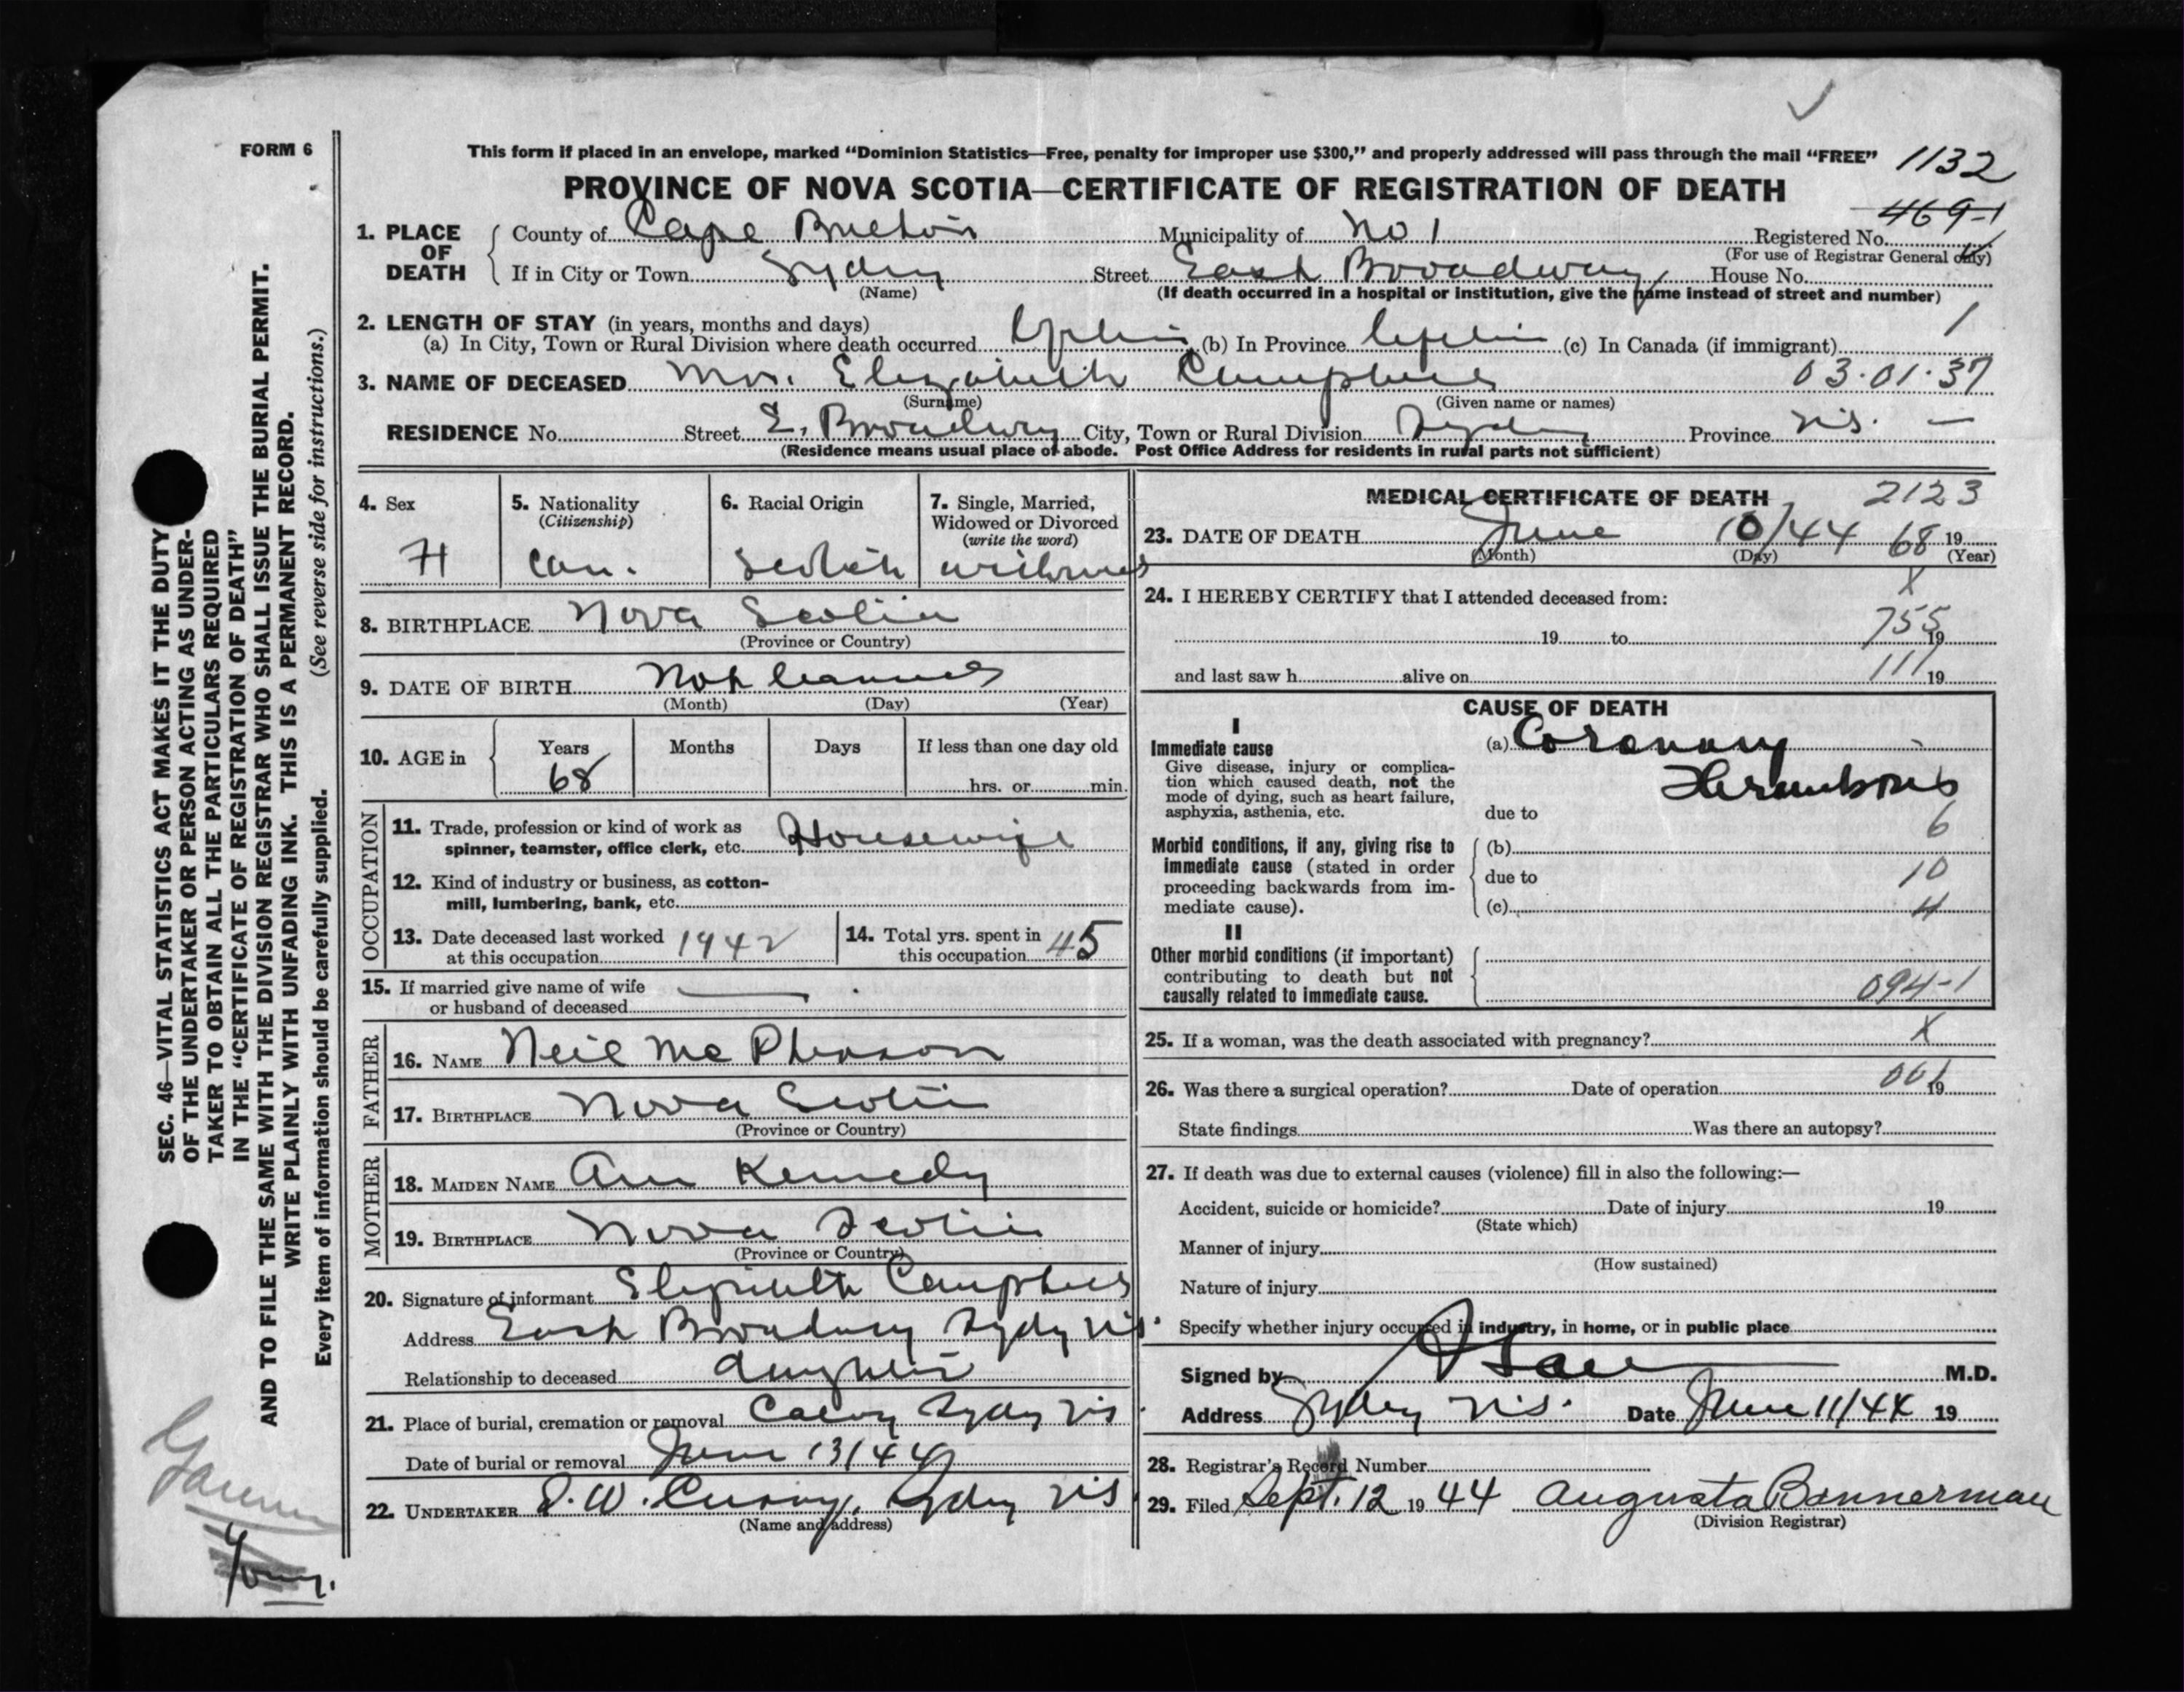 FORM 6
This form if placed in an envelope, marked “Dominion Statistics—Free, penalty for improper use $300,” and properly addressed will pass through the mail “FREE” 1132
PROVINCE OF NOVA SCOTIA—CERTIFICATE OF REGISTRATION OF DEATH
469-1
1. PLACE OF DEATH
County of Cape Breton Municipality of No 1 Registered No.
(For use of Registrar General only)
If in City or Town Sydney Street East Broadway House No.
(Name) (If death occurred in a hospital or institution, give the name instead of street and number)
2. LENGTH OF STAY (in years, months and days) 1
(a) In City, Town or Rural Division where death occurred Lifetime (b) In Province Lifetime (c) In Canada (if immigrant)
3. NAME OF DECEASED Mrs. Elizabeth Campbell 03·01·37
(Surname) (Given name or names)
RESIDENCE No. Street E. Broadway City, Town or Rural Division Sydney Province N.S. —
(Residence means usual place of abode. Post Office Address for residents in rural parts not sufficient)
4. Sex
5. Nationality
(Citizenship)
6. Racial Origin
7. Single, Married,
Widowed or Divorced
(write the word)
Can. Scotch widowed
8. BIRTHPLACE Nova Scotia
(Province or Country)
9. DATE OF BIRTH Not
(Month) (Day) (Year)
10. AGE in Years Months Days If less than one day old
68 hrs. or min.
OCCUPATION
11. Trade, profession or kind of work as
spinner, teamster, office clerk, etc. Housewife
12. Kind of industry or business, as cotton-
mill, lumbering, bank, etc.
13. Date deceased last worked
at this occupation 1942
14. Total yrs. spent in
this occupation 45
15. If married give name of wife
or husband of deceased —
FATHER
16. NAME Neil McPherson
17. BIRTHPLACE Nova Scotia
(Province or Country)
MOTHER
18. MAIDEN NAME Ann Kennedy
19. BIRTHPLACE Nova Scotia
(Province or Country)
20. Signature of informant Elizabeth Campbell
Address East Broadway Sydney N.S.
Relationship to deceased daughter
21. Place of burial, cremation or removal Sydney N.S.
Date of burial or removal June 13/44
22. UNDERTAKER Sydney N.S.
(Name and address)
MEDICAL CERTIFICATE OF DEATH 2123
23. DATE OF DEATH June 10/44 68 19
(Month) (Day) (Year)
X
24. I HEREBY CERTIFY that I attended deceased from:
19 to 755 19
and last saw h alive on 111 19
CAUSE OF DEATH
I
Immediate cause
Give disease, injury or complica-
tion which caused death, not the
mode of dying, such as heart failure,
asphyxia, asthenia, etc.
(a) Coronary
Thrombosis
due to
6
Morbid conditions, if any, giving rise to
immediate cause (stated in order
proceeding backwards from im-
mediate cause).
(b)
due to 10
(c) 4
II
Other morbid conditions (if important)
contributing to death but not
causally related to immediate cause.
094-1
25. If a woman, was the death associated with pregnancy? X
26. Was there a surgical operation? Date of operation 001 19
State findings Was there an autopsy?
27. If death was due to external causes (violence) fill in also the following:—
Accident, suicide or homicide? Date of injury 19
(State which)
Manner of injury
(How sustained)
Nature of injury
Specify whether injury occurred in industry, in home, or in public place
Signed by M.D.
Address Sydney N.S. Date June 11/44 19
28. Registrar's Record Number
29. Filed Sept. 12 19 44 Augusta Bannerman
(Division Registrar)
SEC. 46—VITAL STATISTICS ACT MAKES IT THE DUTY
OF THE UNDERTAKER OR PERSON ACTING AS UNDER-
TAKER TO OBTAIN ALL THE PARTICULARS REQUIRED
IN THE “CERTIFICATE OF REGISTRATION OF DEATH”
AND TO FILE THE SAME WITH THE DIVISION REGISTRAR WHO SHALL ISSUE THE BURIAL PERMIT.
WRITE PLAINLY WITH UNFADING INK. THIS IS A PERMANENT RECORD.
Every item of information should be carefully supplied. (See reverse side for instructions.)